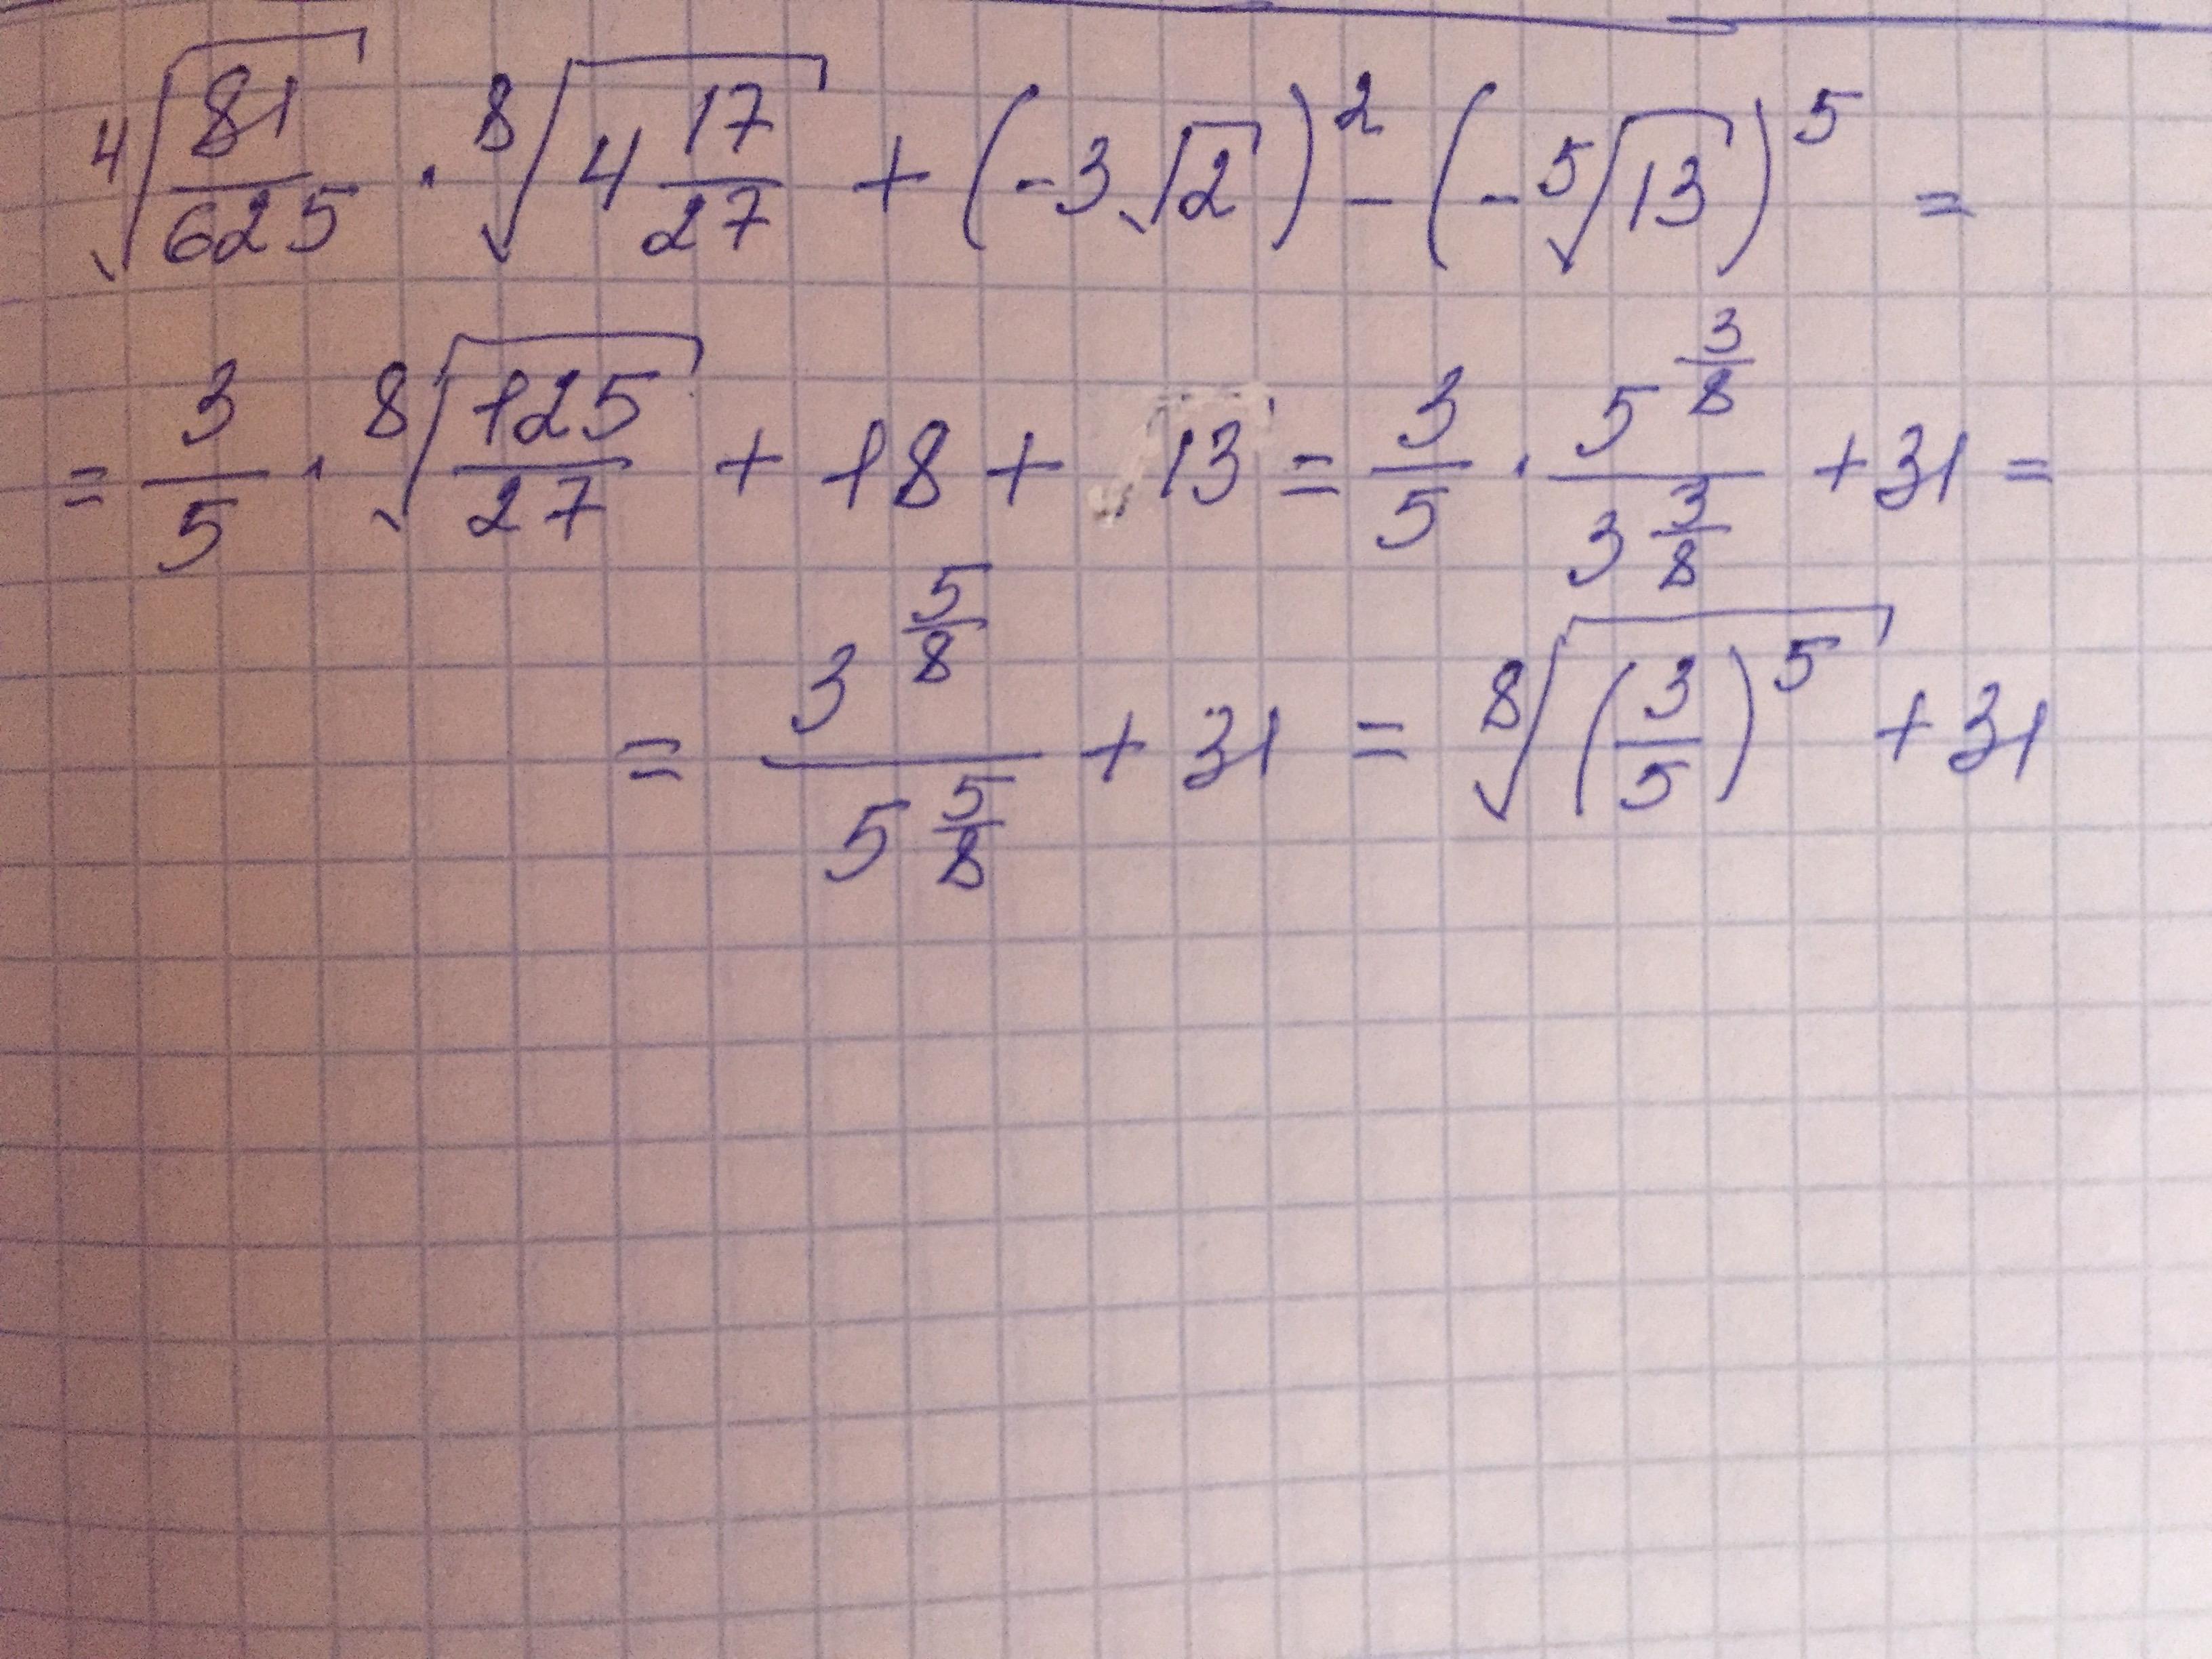 ⁴√(81/625) · ⁸√(4 17/27) + (-3√2)² - (-⁵√13)⁵ =
= 3/5 · ⁸√(125/27) + 18 + 13 = 3/5 · 5^(3/8)/3^(3/8) + 31 =
= 3^(5/8)/5^(5/8) + 31 = ⁸√((3/5)⁵) + 31